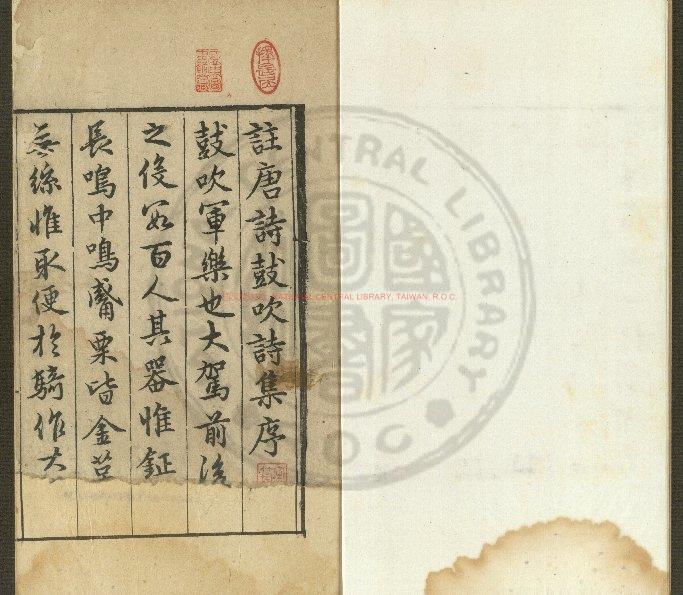 註唐詩鼓吹詩集序
鼓吹軍樂也大駕前後
之役𭓇百人其器惟鉦
長鳴中鳴觱栗皆金革
無絲惟取便於騎作大
NATIONAL CENTRAL LIBRARY, TAIWAN, R.O.C.
CENTRAL LIBRARY
國家圖書